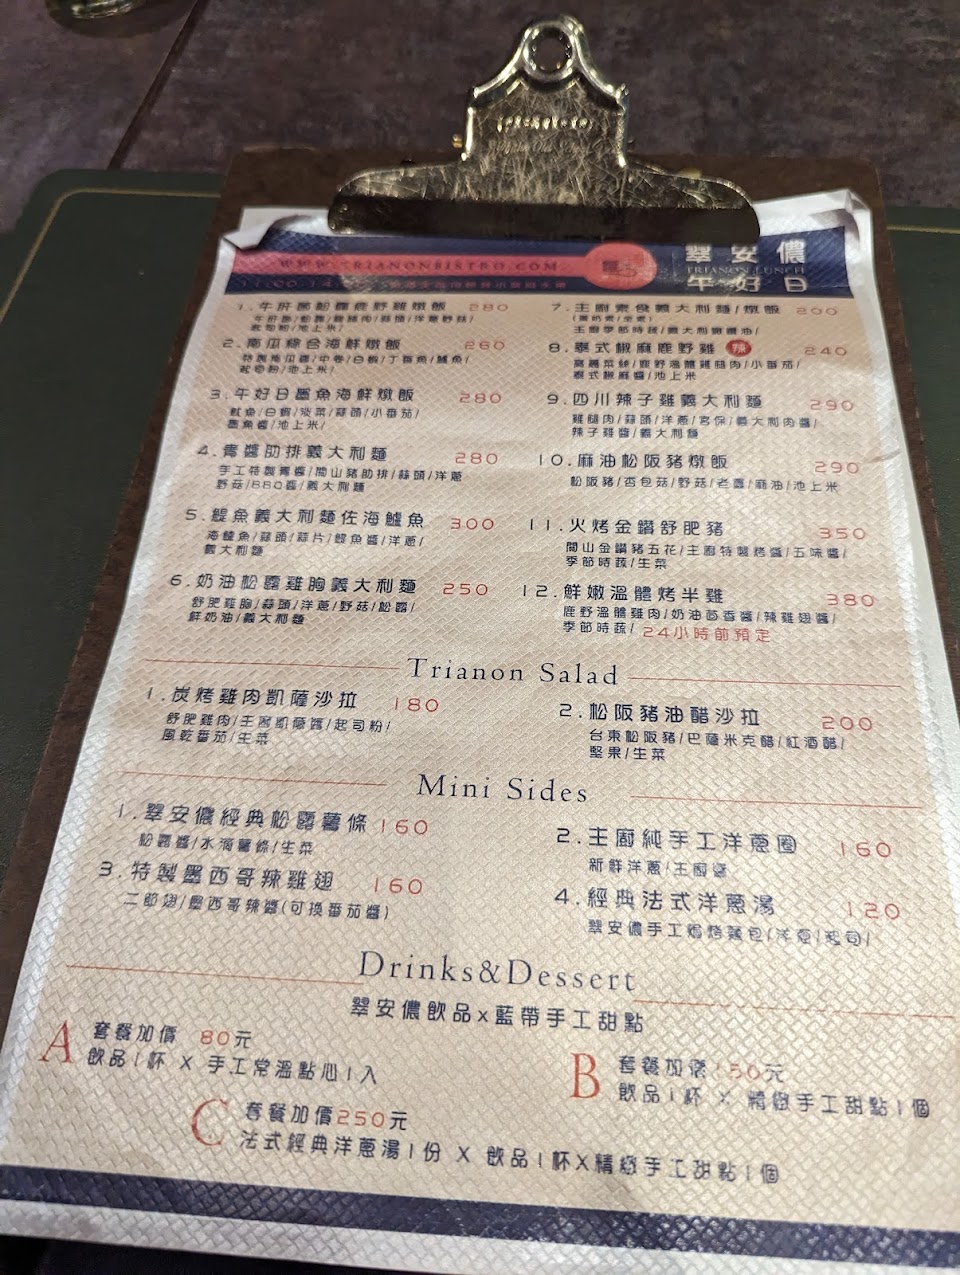 WWW.TRIANONBISTRO.COM
翠安儂
TRIANON LUNCH
午好日
1.牛肝菌松露鹿野雞燉飯 280
起司粉/池上米/
2.南瓜綜合海鮮燉飯 260
特製南瓜醬/中卷/白蝦/丁香魚/鱸魚/
起司粉/池上米/
3.午好日墨魚海鮮燉飯 280
魷魚/白蝦/淡菜/蒜頭/小番茄/
墨魚醬/池上米/
4.青醬肋排義大利麵 280
手工特製青醬/關山豬肋排/蒜頭/洋蔥
野菇/BBQ醬/義大利麵
5.鯷魚義大利麵佐海鱸魚 300
海鱸魚/蒜頭/蒜片/鯷魚醬/洋蔥/
義大利麵
6.奶油松露雞胸義大利麵 250
舒肥雞胸/蒜頭/洋蔥/野菇/松露/
鮮奶油/義大利麵
7.主廚素食義大利麵/燉飯 200
主廚季節時蔬/義大利橄欖油/
8.泰式椒麻鹿野雞 辣 240
高麗菜絲/鹿野溫體雞腿肉/小番茄/
泰式椒麻醬/池上米
9.四川辣子雞義大利麵 290
雞腿肉/蒜頭/洋蔥/宮保/義大利肉醬/
辣子雞醬/義大利麵
10.麻油松阪豬燉飯 290
松阪豬/杏包菇/野菇/老薑/麻油/池上米
11.火烤金鑽舒肥豬 350
關山金鑽豬五花/主廚特製烤醬/五味醬/
季節時蔬/生菜
12.鮮嫩溫體烤半雞 380
鹿野溫體雞肉/奶油茴香醬/辣雞翅醬/
季節時蔬/ 24小時前預定
Trianon Salad
1.炭烤雞肉凱薩沙拉 180
舒肥雞肉/主廚凱薩醬/起司粉/
風乾番茄/生菜
2.松阪豬油醋沙拉 200
台東松阪豬/巴薩米克醋/紅酒醋/
堅果/生菜
Mini Sides
1.翠安儂經典松露薯條 160
松露醬/水滴薯條/生菜
2.主廚純手工洋蔥圈 160
新鮮洋蔥/主廚醬
3.特製墨西哥辣雞翅 160
二節翅/墨西哥辣醬(可換番茄醬)
4.經典法式洋蔥湯 120
翠安儂手工焗烤麵包/洋蔥/起司/
Drinks&Dessert
翠安儂飲品x藍帶手工甜點
A 套餐加價 80元
飲品1杯 X 手工常溫點心1入
B 套餐加價 150元
飲品1杯 X 精緻手工甜點1個
C 套餐加價250元
法式經典洋蔥湯1份 X 飲品1杯X精緻手工甜點1個